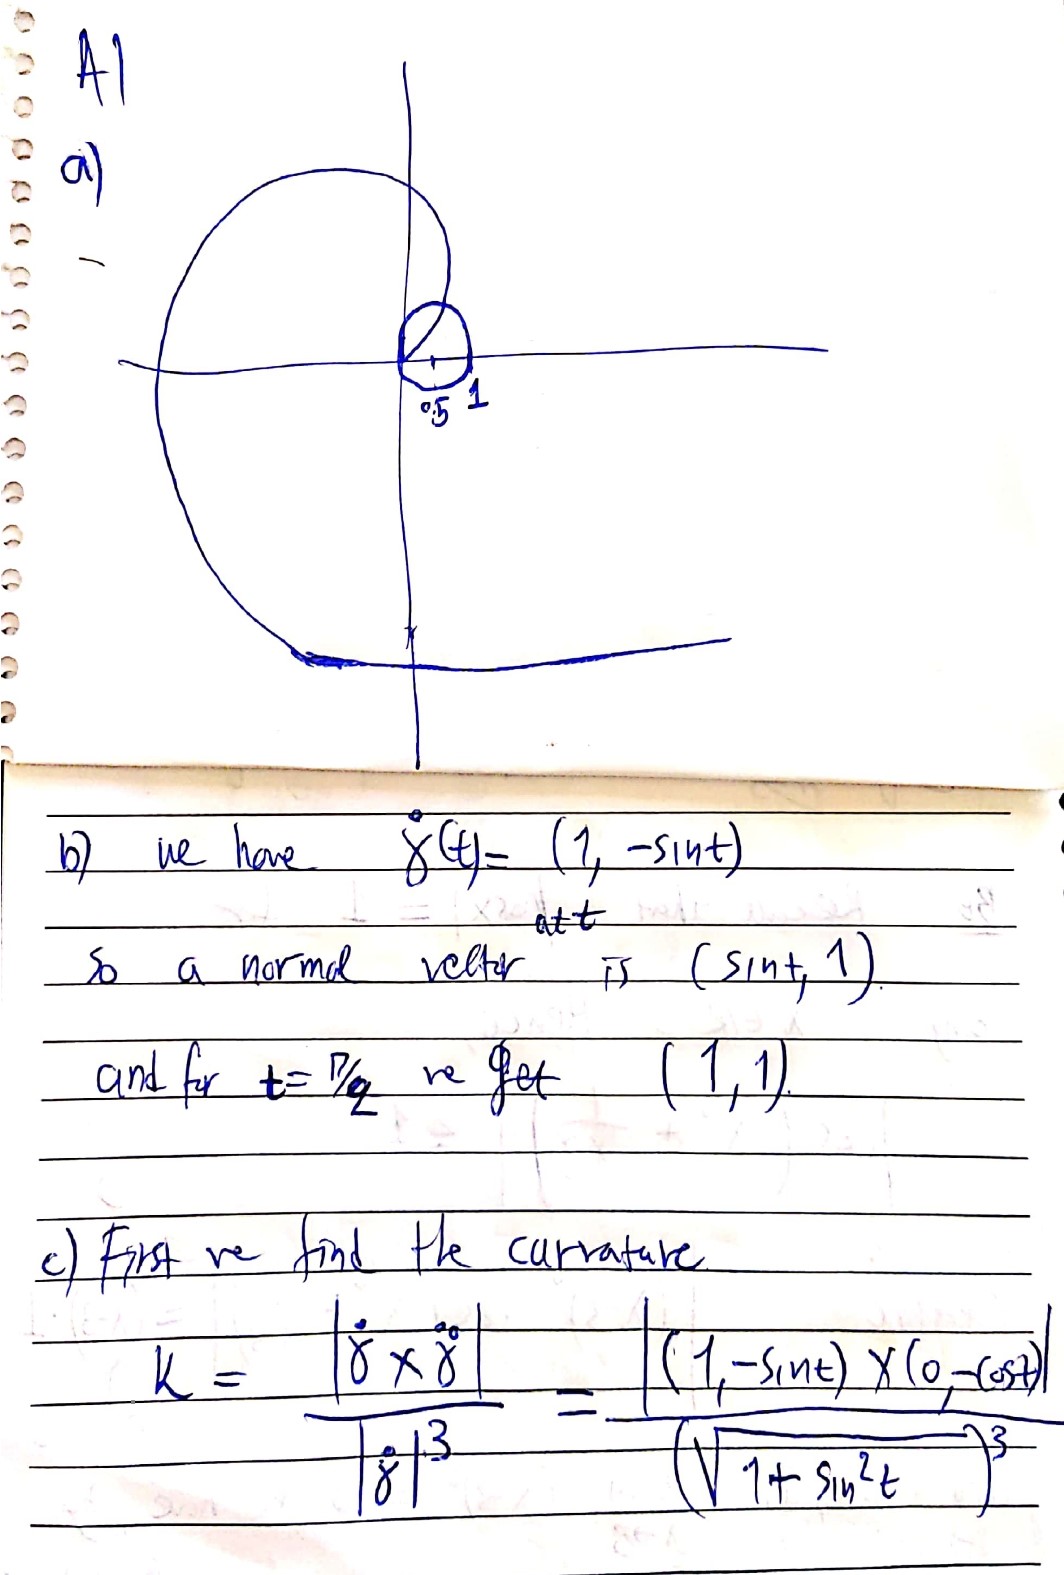 A1
a)
0.5 1
b) we have γ̇(t) = (1, -sint)
at t
so a normal vector is (sint, 1).
and for t = π/2 we get (1, 1).
c) First we find the curvature
K = |γ̇ × γ̈| / |γ̇|³ = |(1, -sint) × (0, -cost)| / (√(1 + sin²t))³